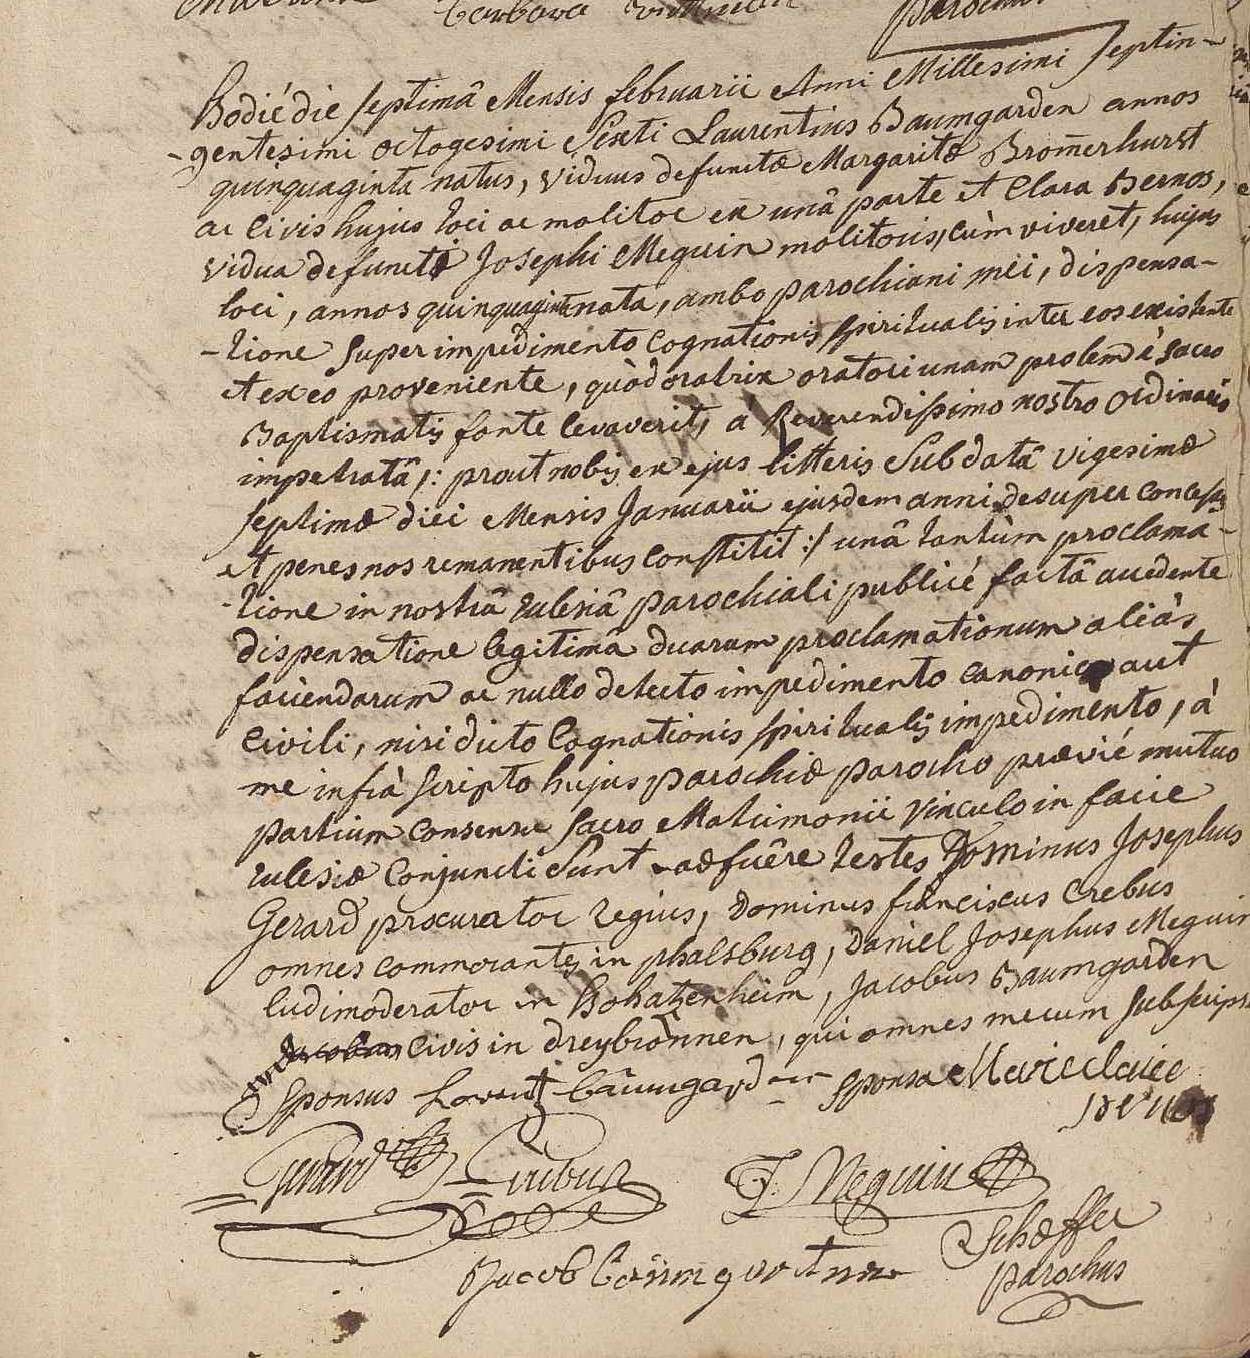 Barbara
parochus
Hodié die septimâ Mensis februarii Anni Millesimi septin-
-gentesimi octogesimi Sexti Laurentius Baumgarden annos
quinquaginta natus, viduus defunctæ Margaritæ Brom̄erhurst
ac Civis hujus loci ac molitor ex unâ parte et Clara Bernos,
vidua defuncti Josephi Meguin molitoris, cùm viveret, hujus
loci, annos quinquaginta nata, ambo parochiani mei, dispensa-
-tione super impedimento Cognationis spiritualis inter eos existente
et ex eo proveniente, quòd oratrix oratori unam prolem è sacro
Baptismatis fonte levaverit, à Reverendissimo nostro Ordinario
impetratâ /: prout nobis ex ejus litteris Sub datâ vigesimæ
septimæ diei Mensis Januarii ejusdem anni desuper concessis
et penes nos remanentibus constitit :/ unâ tantùm proclama-
-tione in nostrâ Eclesiâ parochiali publicè factâ accedente
dispensatione legitimâ duarum proclamationum aliàs
faciendarum ac nullo detecto impedimento canonico aut
Civili, nisi dicto Cognationis spiritualis impedimento, à
me infrà scripto hujus parochiæ parocho præviè mutuo
partium consensu sacro Matrimonii vinculo in facie
Eclesiæ Conjuncti Sunt adfuêre testes Dominus Josephus
Gerard procurator regius, Dominus franciscus Crebus
omnes commorantes in phalsburg, Daniel Josephus Meguin
ludimoderator in Bohatzenheim, Jacobus Baumgarden
civis in dreybrônnen, qui omnes mecum subscripse
Sponsus Lorentz baumgardner sponsa Marie claire
Bernos
Gerard Crebus J. Meguin
Schæffer
Jacob baumgartner parochus